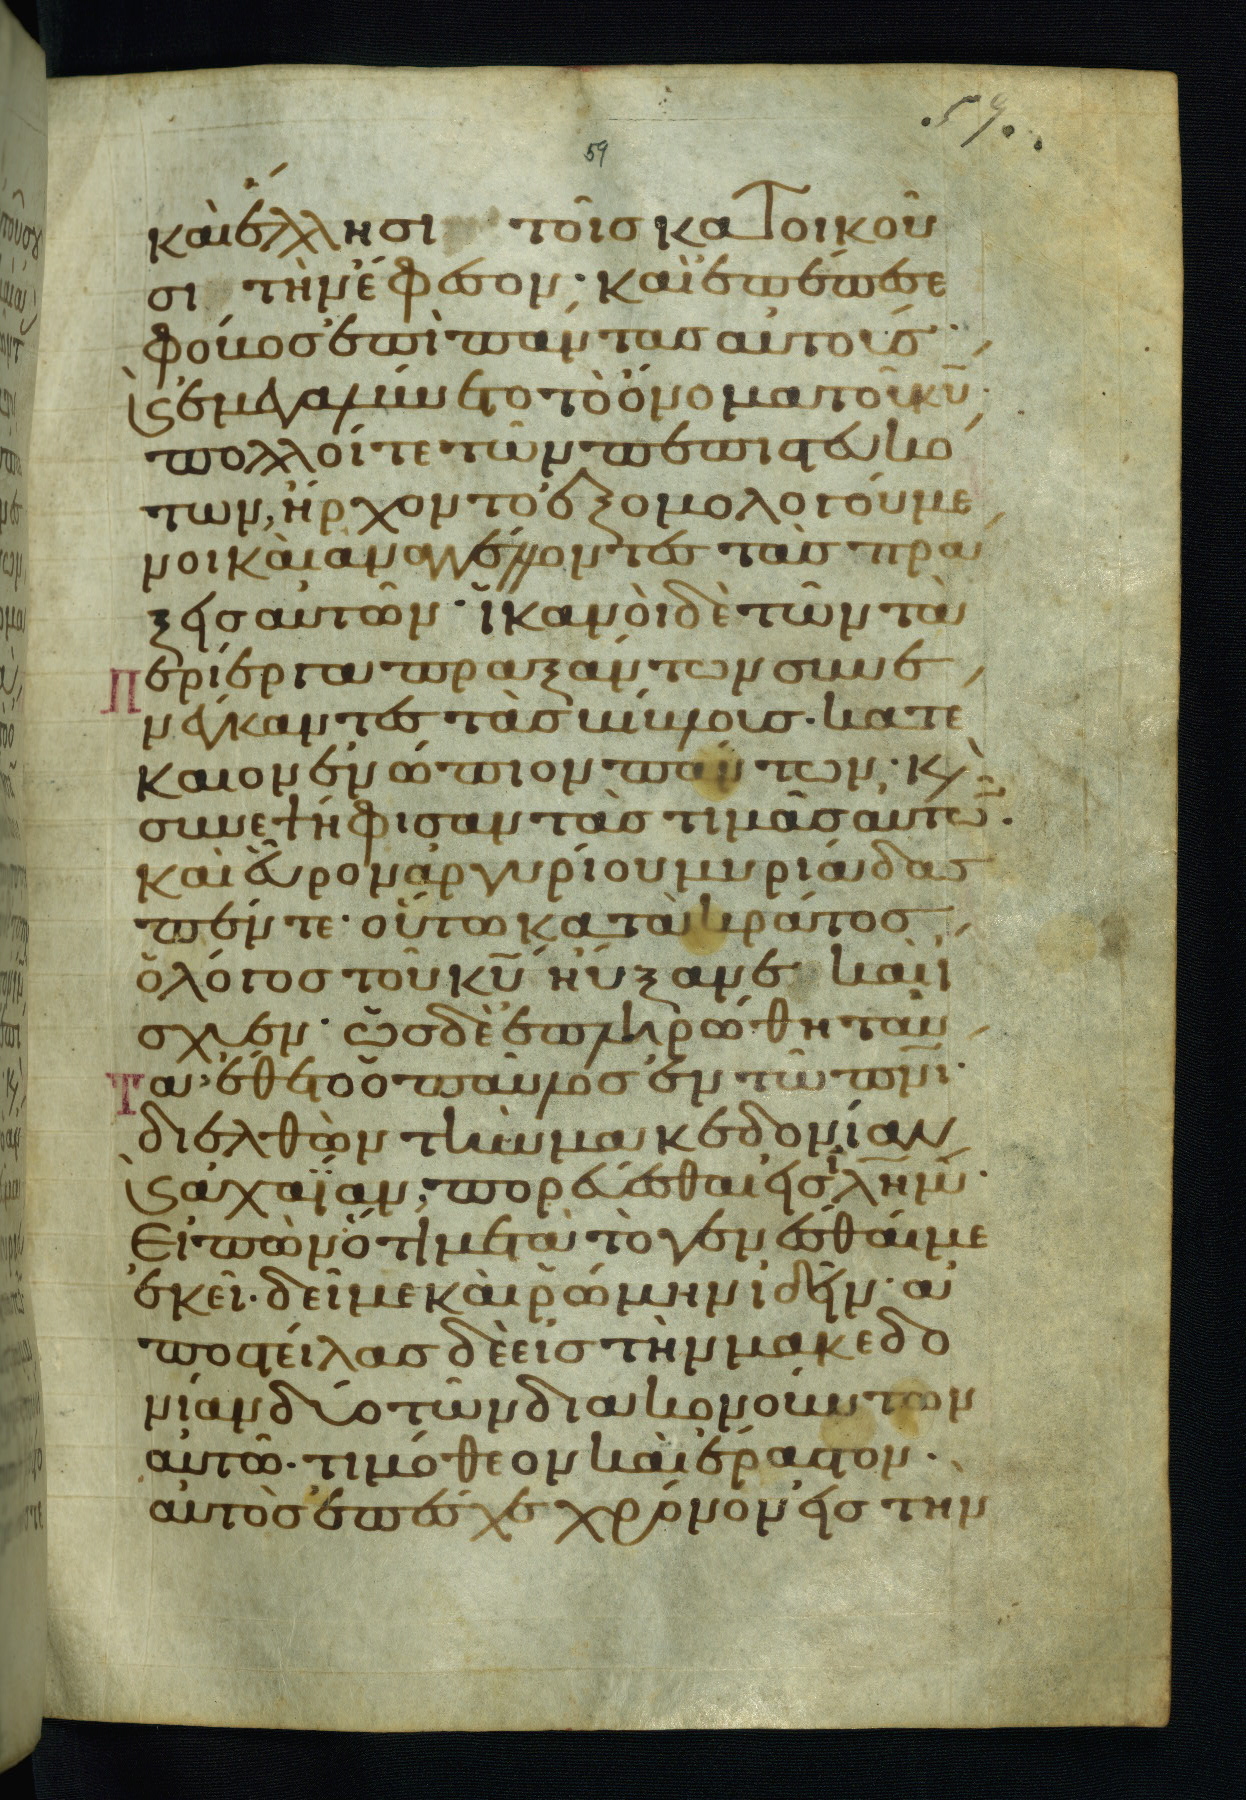 .59.
59
καὶ ἕλλησι τοῖς κατοικοῦ
σι τὴν ἔφεσον· καὶ ἐπέπεσε
φόβος ἐπὶ πάντας αὐτούς·
καὶ ἐμεγαλύνετο τὸ ὄνομα τοῦ κῦ·
πολλοί τε τῶν πεπιστευκό
των, ἤρχοντο ἐξομολογούμε
νοι καὶ ἀναγγέλλοντες τὰς πρά
ξεις αὐτῶν· ἱκανοὶ δὲ τῶν τὰ
Περίεργα πραξάντων συνε
νέγκαντες τὰς βίβλους· κατέ
καιον ἐνώπιον πάντων· καὶ
συνεψήφισαν τὰς τιμὰς αὐτῶν·
καὶ εὗρον ἀργυρίου μυριάδας
πέντε· οὕτω κατὰ κράτος
ὁ λόγος τοῦ κῦ ηὔξανε καὶ ἴ
σχυεν· ὡς δὲ ἐπληρώθη ταῦ
Τα, ἔθετο ὁ παῦλος ἐν τῶ πνι·
διελθὼν τὴν μακεδονίαν
καὶ ἀχαΐαν, πορεύεσθαι εἰς ἰλημ·
Εἰπὼν ὅτι μετὰ τὸ γενέσθαι με
ἐκεῖ· δεῖ με καὶ ῥώμην ἰδεῖν· ἀ
ποστείλας δὲ εἰς τὴν μακεδο
νίαν δύο τῶν διακονούντων
αὐτῶ· τιμόθεον καὶ ἔραστον·
αὐτὸς ἐπέσχε χρόνον εἰς τὴν